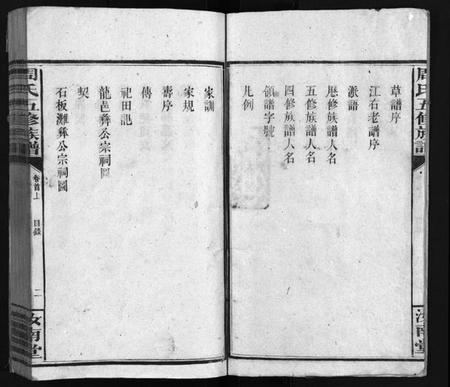 周氏五修族譜
草譜序
江右老譜序
派語
歷修族譜人名
五修族譜人名
四修族譜人名
領譜字號
凡例
汝南堂
家訓
家規
壽序
傳
祀田記
龍邑彝公宗祠圖
契
石板灘彝公宗祠圖
周氏五修族譜
卷首上
目錄
二
汝南堂